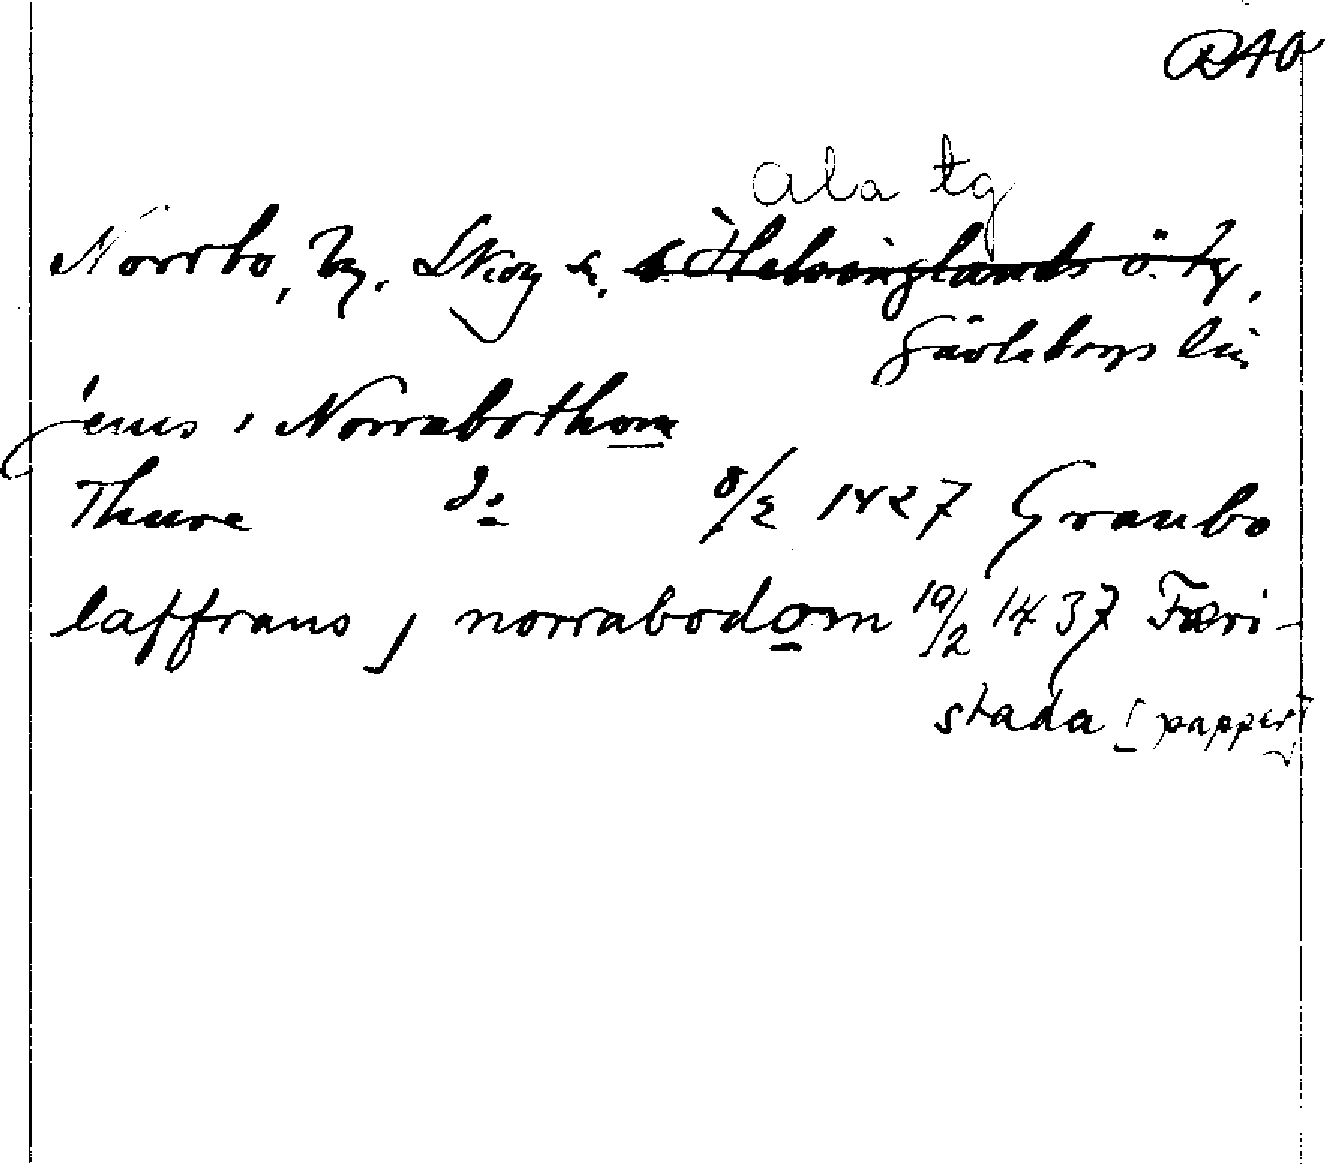 RAO
Ala tg
Norrbo, by. Skog s. s. Helsinglands ö. tg,
Gävleborgs län
jens i Norrabothom
Thure do 8/2 1427 Graubo
laffrans j norrabodom 19/2 1437 Færi-
stada [papper]